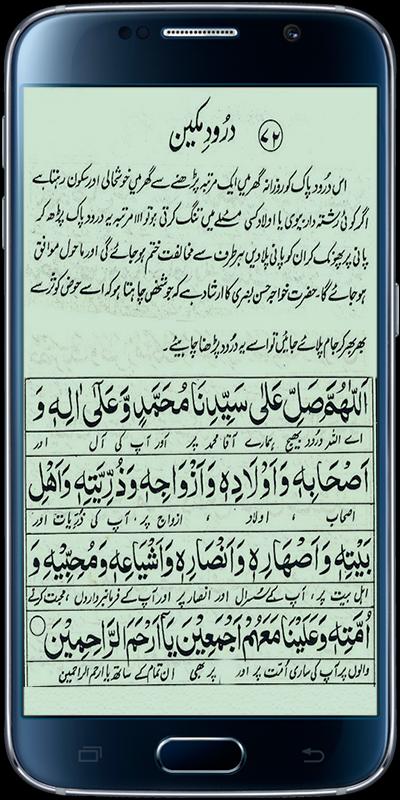 ۷۲ درُودِ مکین
اس درُود پاک کو روزانہ گھر میں ایک مرتبہ پڑھنے سے گھر میں خوشحالی اور سکون رہتا ہے
اگر کوئی رشتہ دار، بیوی یا اولاد کسی مسئلے میں تنگ کرتی ہو تو ۱۱۱ مرتبہ یہ درود پاک پڑھ کر
پانی پر پھونک کر ان کو پانی پلا دیں ہر طرف سے مخالفت ختم ہو جائے گی اور ماحول موافق
ہو جائے گا۔ حضرت خواجہ حسن بصری کا ارشاد ہے کہ جو شخص چاہتا ہو کہ اسے حوضِ کوثر سے
بھر بھر کر جام پلائے جائیں تو اسے یہ درُود پڑھنا چاہیئے۔
اَللّٰهُمَّ صَلِّ عَلٰى سَيِّدِنَا مُحَمَّدٍ وَّعَلٰٓى اٰلِهٖ وَ
اے اللہ درُود بھیج ہمارے آقا محمد پر اور آپ کی آل اور
اَصْحَابِهٖ وَاَوْلَادِهٖ وَاَزْوَاجِهٖ وَذُرِّيَّتِهٖ وَاَهْلِ
اصحاب ، اولاد ، ازواج پر، آپ کی ذُرّیات اور
بَيْتِهٖ وَاَصْهَارِهٖ وَاَنْصَارِهٖ وَاَشْيَاعِهٖ وَمُحِبِّيْهِ وَ
اہل بیت پر، آپ کے سُسرال اور انصار پر اور آپ کے فرمانبرداروں، محبت کرنے
اُمَّتِهٖ وَعَلَيْنَا مَعَهُمْ اَجْمَعِيْنَ يَا اَرْحَمَ الرَّاحِمِيْنَ
والوں پر آپ کی ساری اُمّت پر اور پر بھی ان تمام کے ساتھ یا ارحم الراحمین